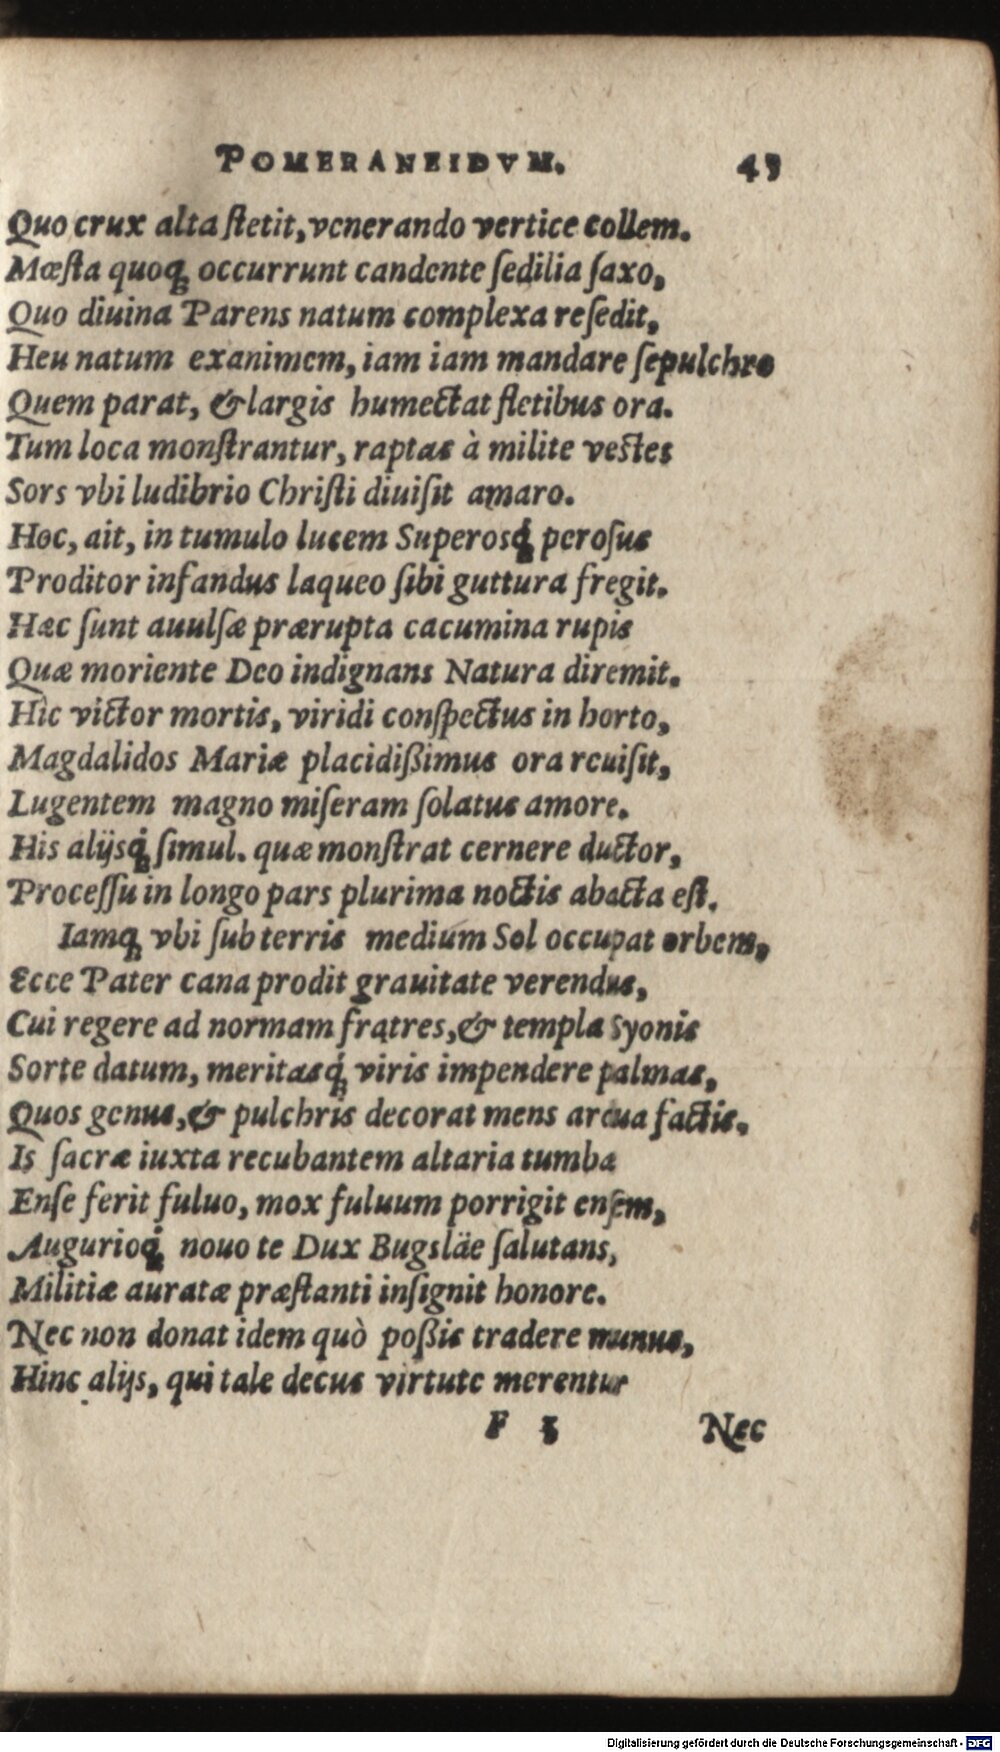 POMERANEIDVM. 45
Quo crux alta ſtetit, venerando vertice collem.
Mœſta quoq; occurrunt candente ſedilia ſaxo,
Quo diuina Parens natum complexa reſedit,
Heu natum exanimem, iam iam mandare ſepulchro
Quem parat, & largis humectat fletibus ora.
Tum loca monſtrantur, raptas à milite veſtes
Sors vbi ludibrio Chriſti diuiſit amaro.
Hoc, ait, in tumulo lucem Superosq́; peroſus
Proditor infandus laqueo ſibi guttura fregit.
Hæc ſunt auulſæ prærupta cacumina rupis
Quæ moriente Deo indignans Natura diremit.
Hìc victor mortis, viridi conſpectus in horto,
Magdalidos Mariæ placidißimus ora reuiſit,
Lugentem magno miſeram ſolatus amore.
His alijsq́; ſimul. quæ monſtrat cernere ductor,
Proceſſu in longo pars plurima noctis abacta eſt.
Iamq; vbi ſub terris medium Sol occupat orbem,
Ecce Pater cana prodit grauitate verendus,
Cui regere ad normam fratres, & templa Syonis
Sorte datum, meritasq́; viris impendere palmas,
Quos genus, & pulchris decorat mens ardua factis.
Is ſacræ iuxta recubantem altaria tumba
Enſe ferit fuluo, mox fuluum porrigit enſem,
Augurioq́; nouo te Dux Bugsläe ſalutans,
Militiæ auratæ præſtanti inſignit honore.
Nec non donat idem quò poßis tradere munus,
Hinc alijs, qui tale decus virtute merentur
F 3 Nec
Digitalisierung gefördert durch die Deutsche Forschungsgemeinschaft - DFG